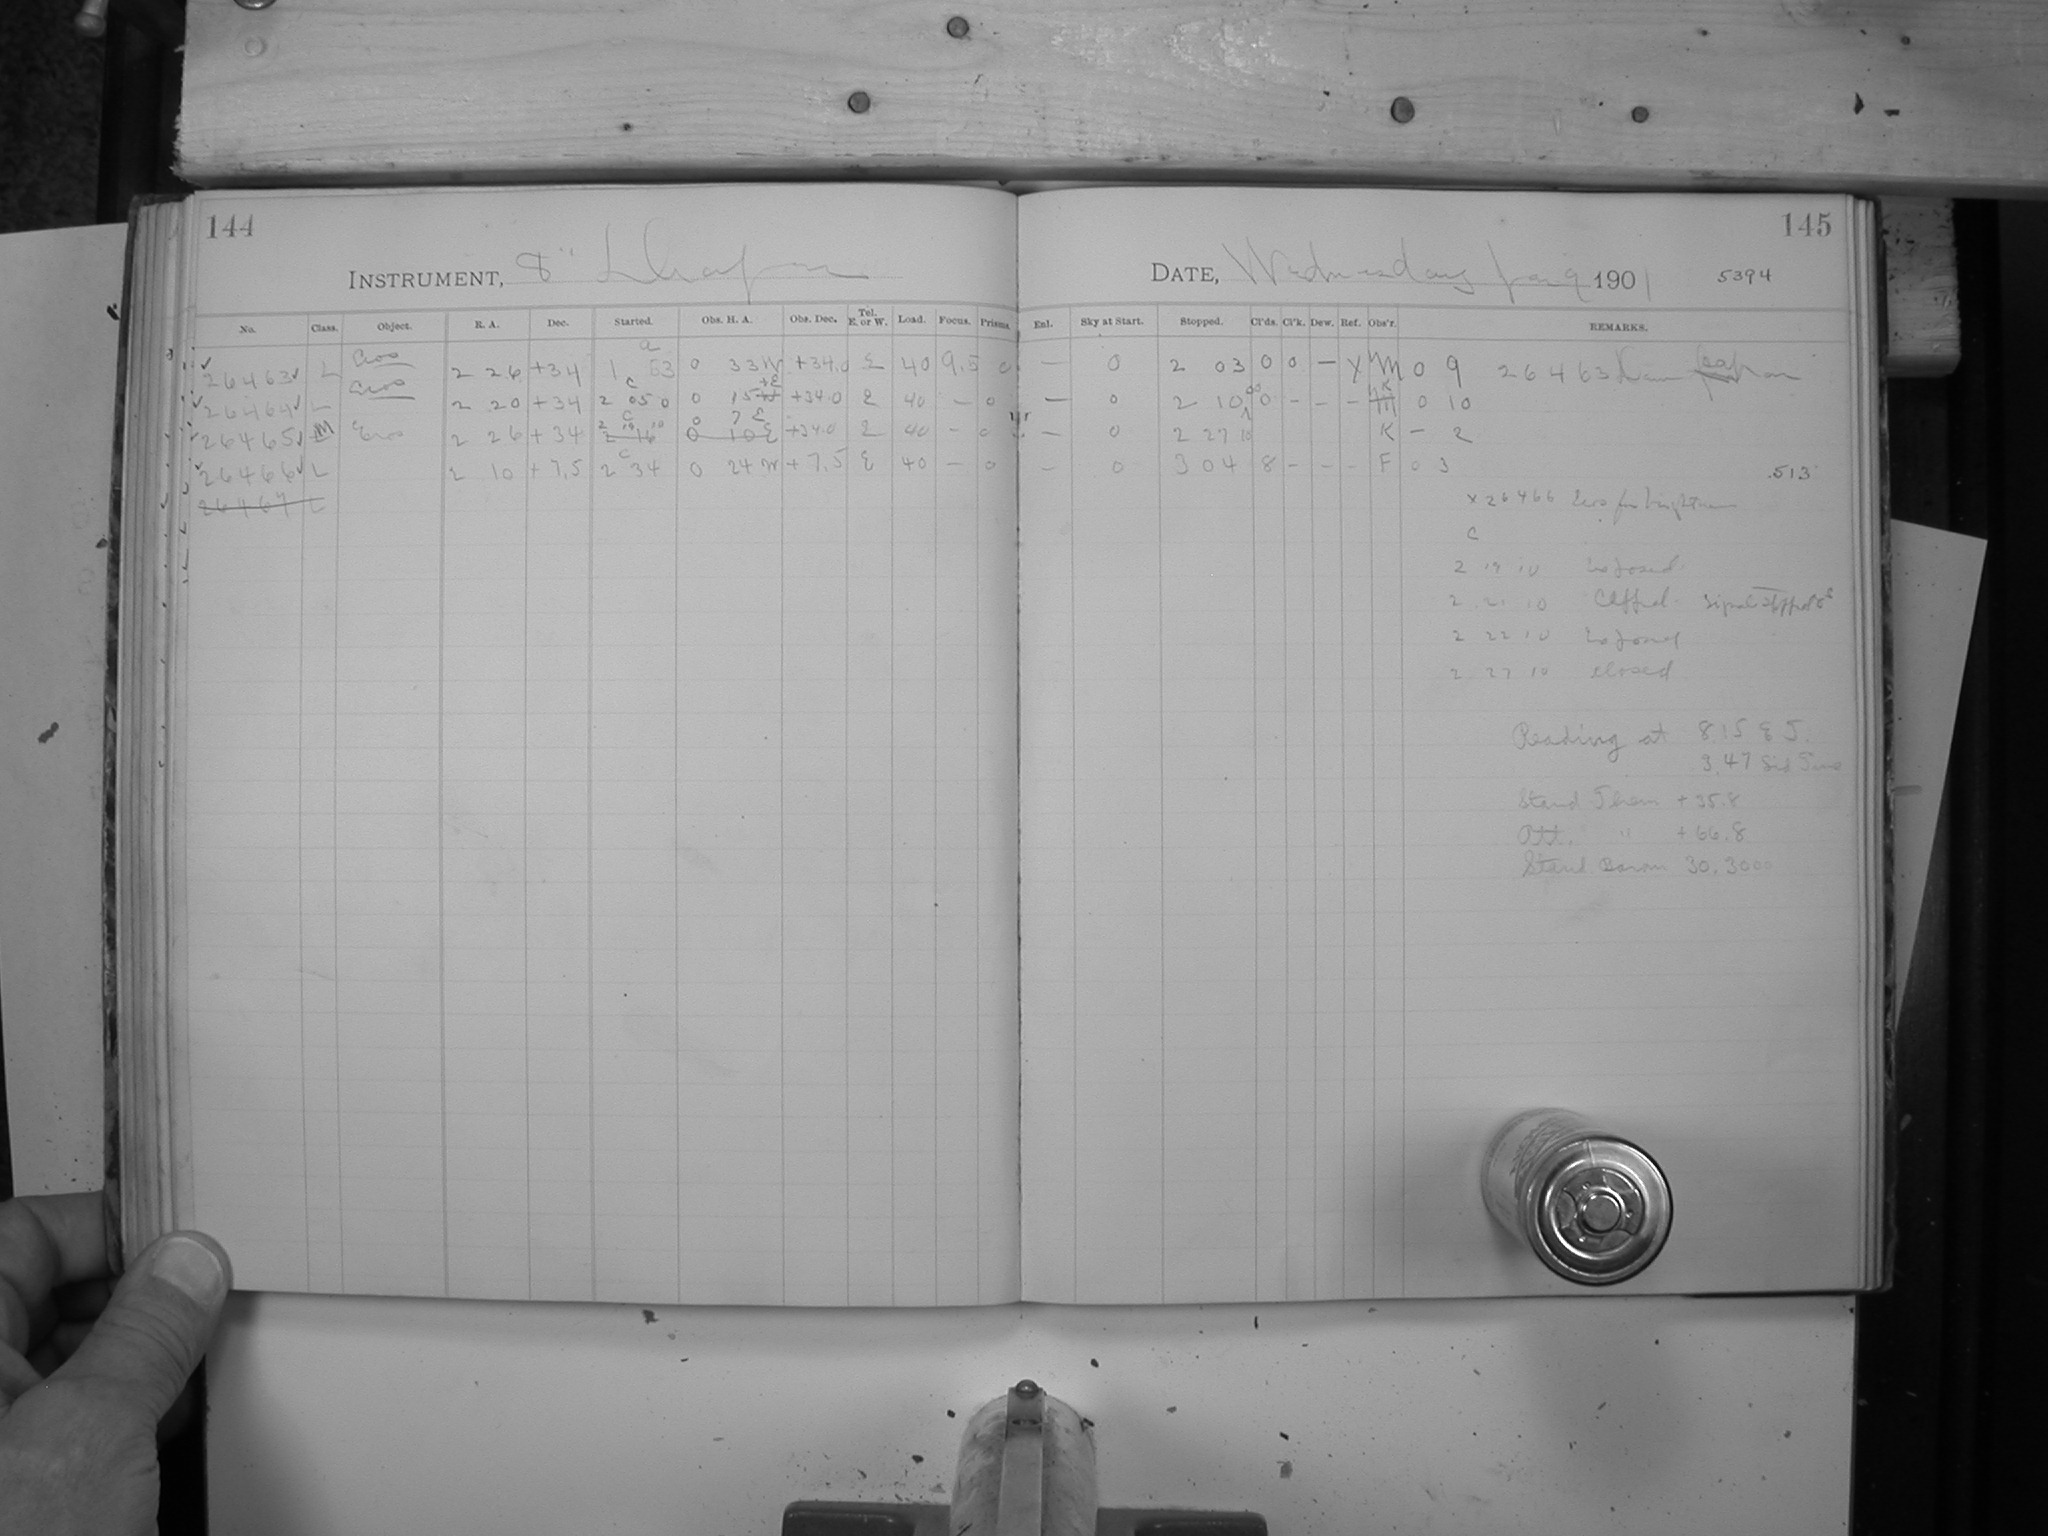 144
INSTRUMENT, 8"
No. Class. Object. R. A. Dec. Started. Obs. H. A. Obs. Dec. Tel. E. or W. Load. Focus. Prisms.
26463 L Eros 2 26 +34 1 53 0 33 W +34.0 E 40 9.5 0
26464 L Eros 2 20 +34 2 05 0 0 15 +34.0 E 40 — 0
26465 M Eros 2 26 +34 2 16 0 10 E +34.0 E 40 - 0
26466 L 2 10 +7.5 2 34 0 24 W +7.5 E 40 - 0
26467 L
145
DATE, Wednesday Jan 9 1901 5394
Enl. Sky at Start. Stopped. Cl'ds. Cl'k. Dew. Ref. Obs'r. REMARKS.
— 0 2 03 0 0 — Y M 0 9 26463
— 0 2 10 0 - - - K 0 10
— 0 2 27 10 K - 2
— 0 3 04 8 - - - F 0 3
.513
x 26466 for brightness
C
2 19 10 Exposed
2 21 10 Capped. Signal stopped
2 22 10 Exposed
2 27 10 closed
Reading at 8.15 E S.
3.47 Sid Time
Stand Therm +35.8
Att. " +66.8
Stand Barom 30.3000